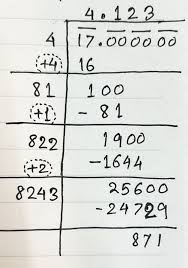 4.123
4 17.00 00 00
(+4) 16
81 100
(+1) - 81
822 1900
(+2) -1644
8243 25600
-24729
871